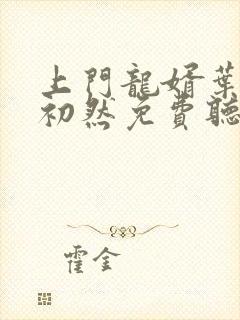 上門龍婿葉
初然免費聽
霍金